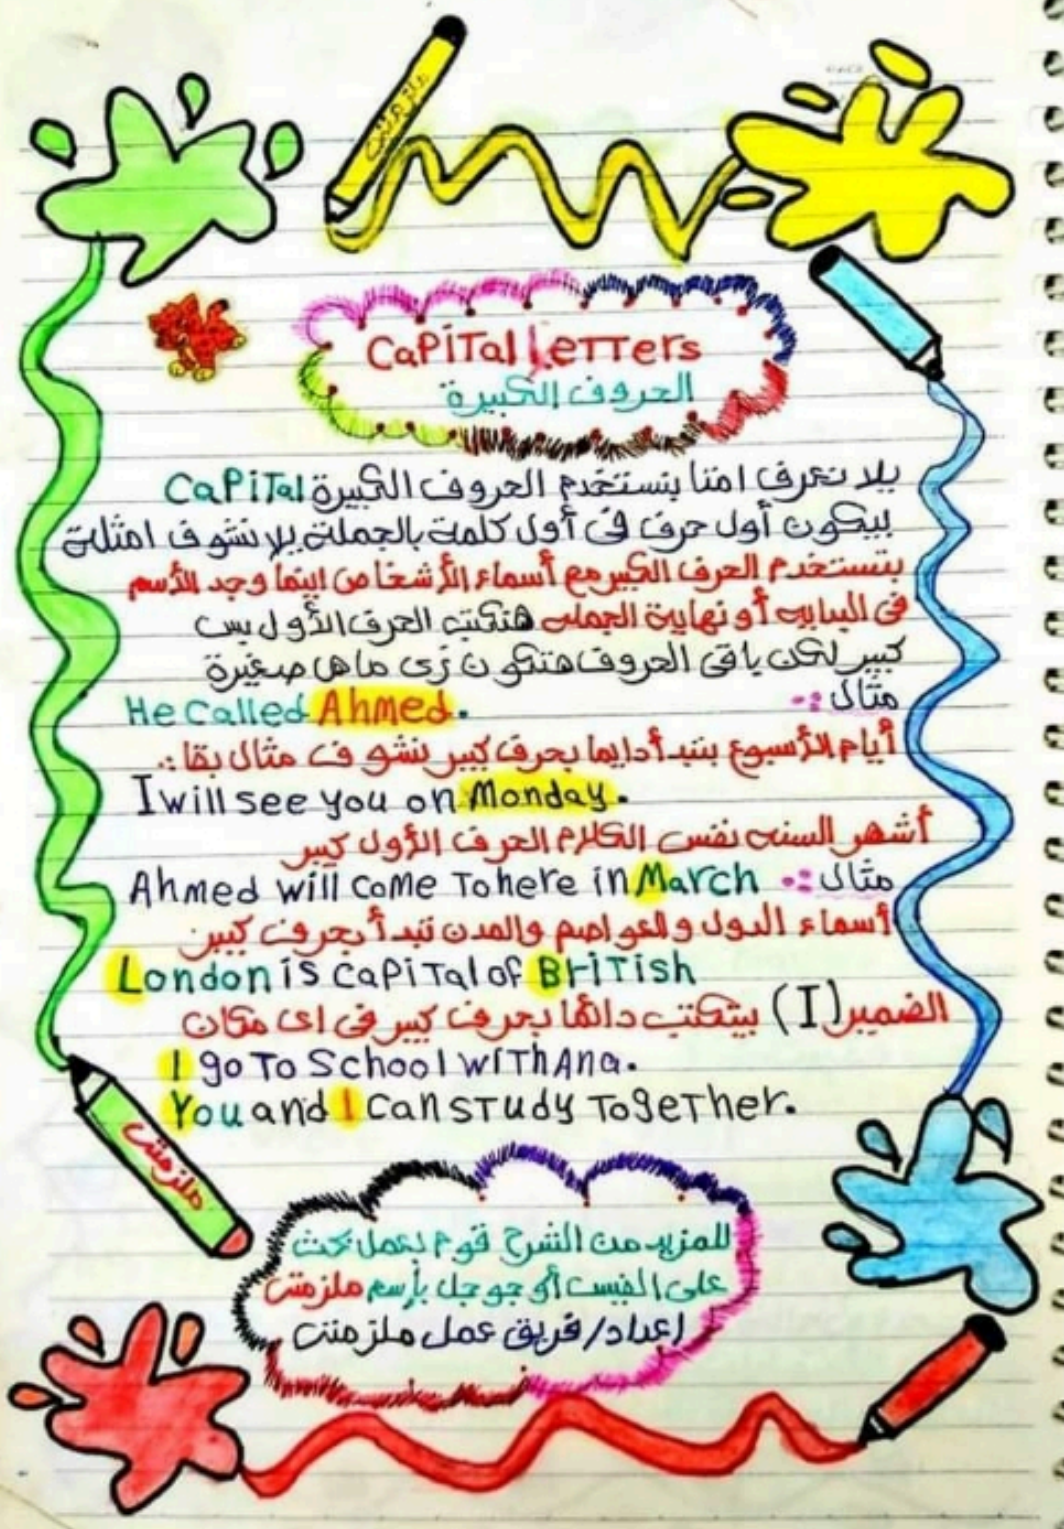 ملزمتى
Capital Letters
الحروف الكبيرة
يلا نعرف امتا بنستخدم الحروف الكبيرة Capital
بيكون أول حرف فى أول كلمة بالجملة يلا نشوف امثلة
بتستخدم الحرف الكبير مع أسماء الأشخاص اينما وجد الأسم
فى البدايه أو نهاية الجمله هنكتب الحرف الأول بس
كبير لكن باقى الحروف هتكون زى ماهى صغيرة
مثال :-
He called Ahmed.
أيام الأسبوع بنبدأ دايما بحرف كبير نشوف مثال بقا :.
I will see you on Monday.
أشهر السنه نفس الكلام الحرف الأول كبير
مثال :- Ahmed will come To here in March
أسماء الدول والعواصم والمدن تبدأ بحرف كبير
London is capital of British
الضمير (I) بيتكتب دائما بحرف كبير فى اى مكان
I go To School with Ana.
You and I can study Together.
ملزمتى
للمزيد من الشرح قوم بعمل بحث
على الفيس أو جوجل بأسم ملزمتى
اعداد/ فريق عمل ملزمتى